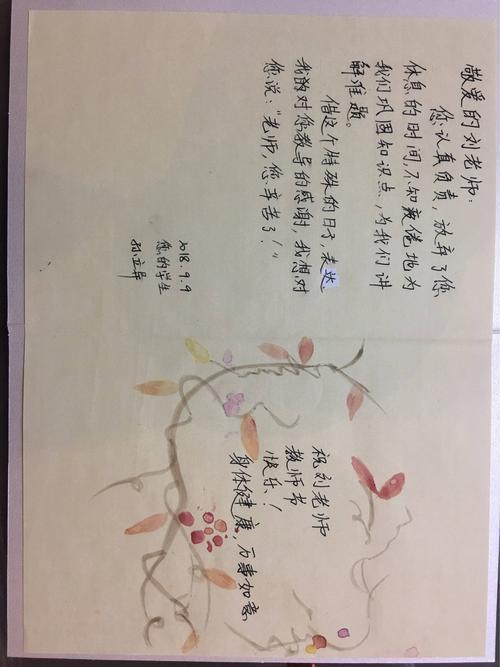 敬爱的刘老师:
您认真负责,放弃了您
休息的时间,不知疲倦地为
我们巩固知识点,为我们讲
解难题。
借这个特殊的日子,表达
我的对您教导的感谢,我想对
您说:“老师,您辛苦了!”
2018.9.9
您的学生
祝刘老师
教师节
快乐!
身体健康,万事如意